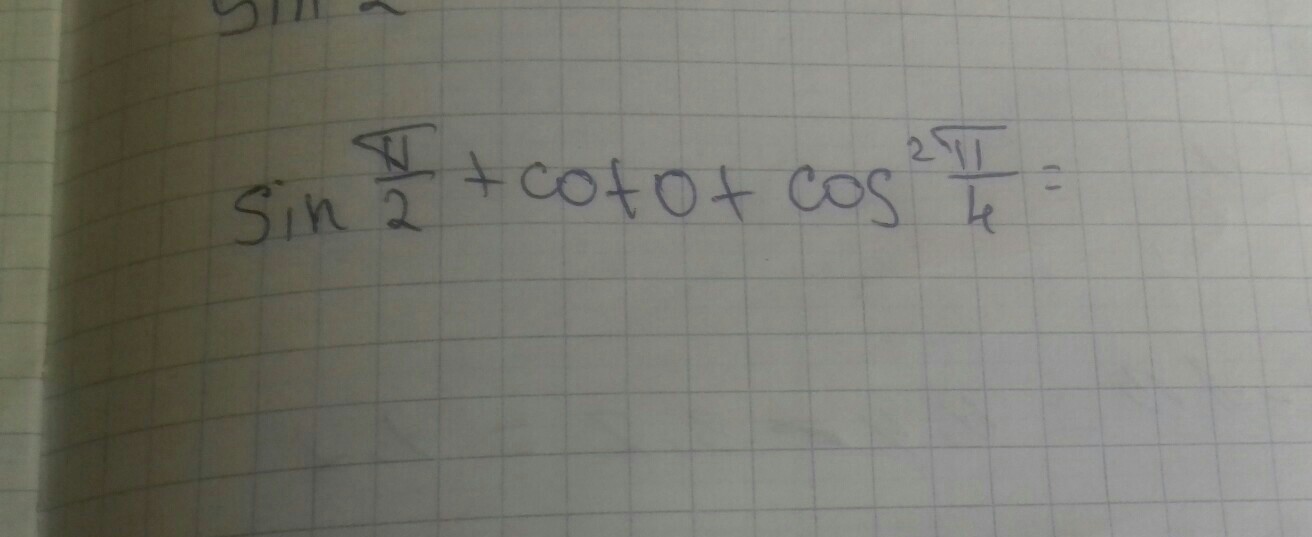 sin π/2 + cot 0 + cos² π/4 =